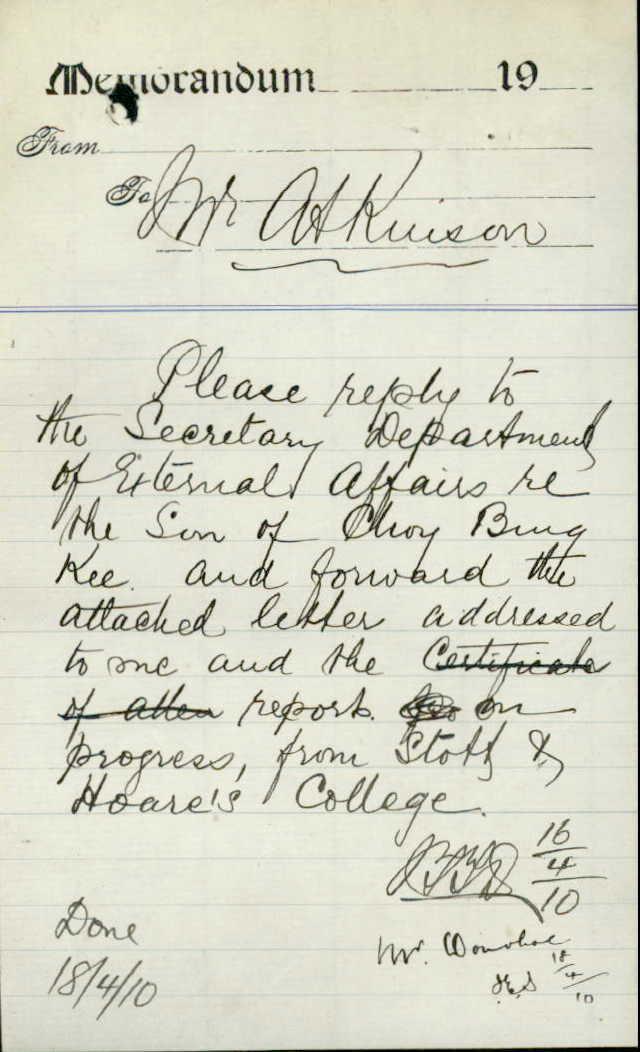 Memorandum 19
From
To Mr Atkinson
Please reply to
the Secretary Department
of External Affairs re
the Son of Choy Bing
Kee. and forward the
attached letter addressed
to me and the Certificate
of atten report on
progress, from Stott &
Hoare's College.
16/4/10
Done
18/4/10
Mr. Donohoe
18/4/10